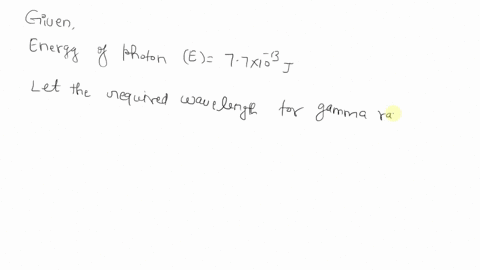 Given,
Energy of photon (E) = 7.7×10⁻¹³ J
Let the required wavelength for gamma ra